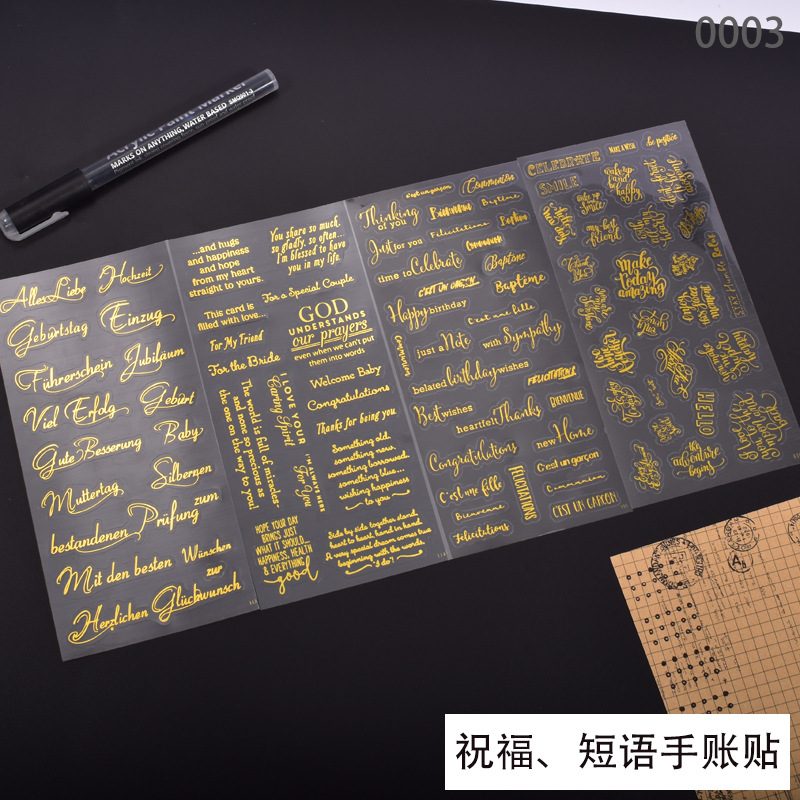 0003
Acrylic Paint Marker
MARKS ON ANYTHING, WATER BASED
Alles Liebe Hochzeit
Geburtstag Einzug
Führerschein Jubiläum
Viel Erfolg Geburt
Gute Besserung Baby
Muttertag Silbernen
bestandenen Prüfung zum
Mit den besten Wünschen
zur
Herzlichen Glückwunsch
...and hugs
and happiness
and hope
from my heart
straight to yours.
You share so much,
so gladly, so often...
I'm blessed to have
you in my life.
This card is
filled with love...
For a Special Couple
For My Friend
For the Bride
GOD
UNDERSTANDS
our prayers
even when we can't put
them into words
Welcome Baby
Congratulations
Thanks for being you
I LOVE YOUR
Caring Spirit
The world is full of miracles
and none so precious as
the one on the way to you!
I'M ALWAYS HERE
For You
Something old,
something new,
something borrowed,
something blue...
wishing happiness
to you
HOPE YOUR DAY
BRINGS JUST
WHAT IT SHOULD...
HAPPINESS, HEALTH
& EVERYTHING
good
Side by side together stand,
heart to heart, hand in hand.
A very special dream comes true
beginning with the words,
"I do"!
c'est un garçon Communion
Thinking
of you
Bienvenue Baptême
Just for you Félicitations
Communion
time to Celebrate Baptême
C'EST UN GARÇON! Baptême
Happy birthday
C'est une fille
Communion
just a Note with Sympathy
belated birthday wishes
FÉLICITATIONS
Best wishes BIENVENUE
heartfelt Thanks
Congratulations new Home
C'est une fille C'est un garçon
FÉLICITATIONS
Bienvenue Communion
Félicitations C'EST UN GARÇON!
CELEBRATE MAKE A WISH be positive
SMILE
wake up
and be
happy
my best
friend
make
today
amazing
enjoy
this
moment
HELLO
the
adventure
begins
祝福、短语手账贴